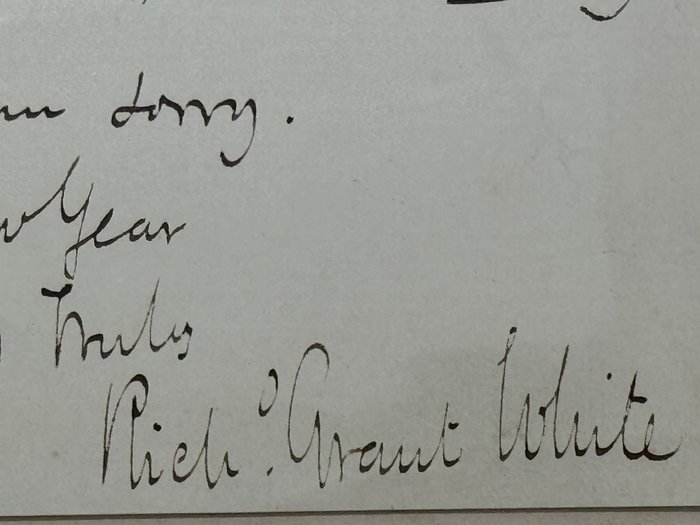 sorry.
Year
Truly
Richd. Grant White